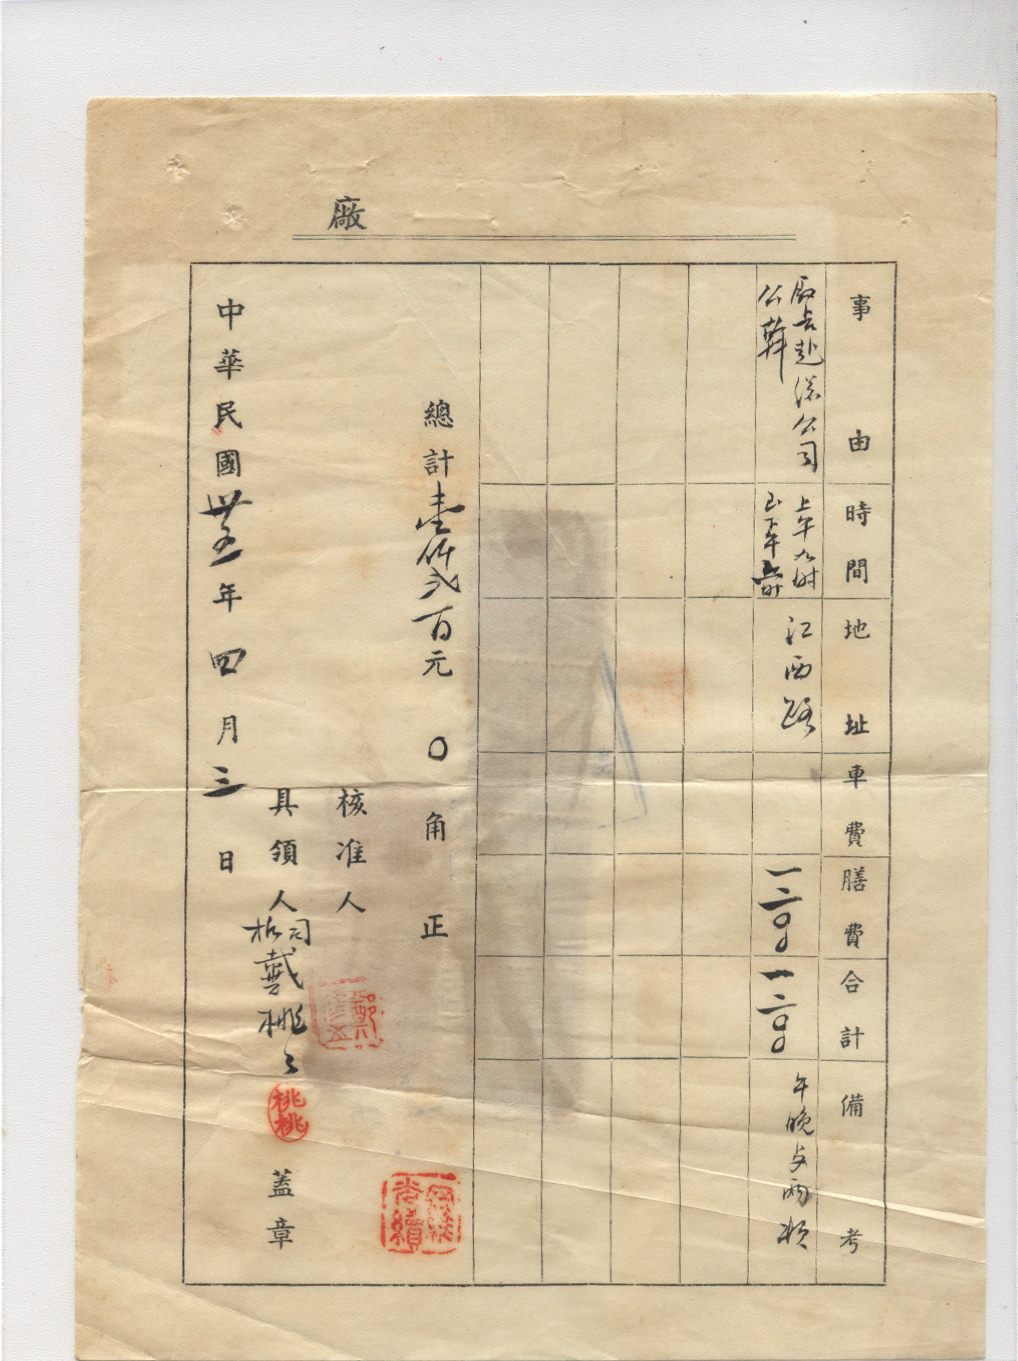 廠
事由
時間
地址
車費
膳費
合計
備考
廠長赴總公司
公幹
上午九時
江西路
一二〇〇
一二〇〇
午晚者兩頓
總計壹仟弍百元〇角正
核准人
具領人
司
戴桃〻
桃桃
蓋章
中華民國卅五年四月三日